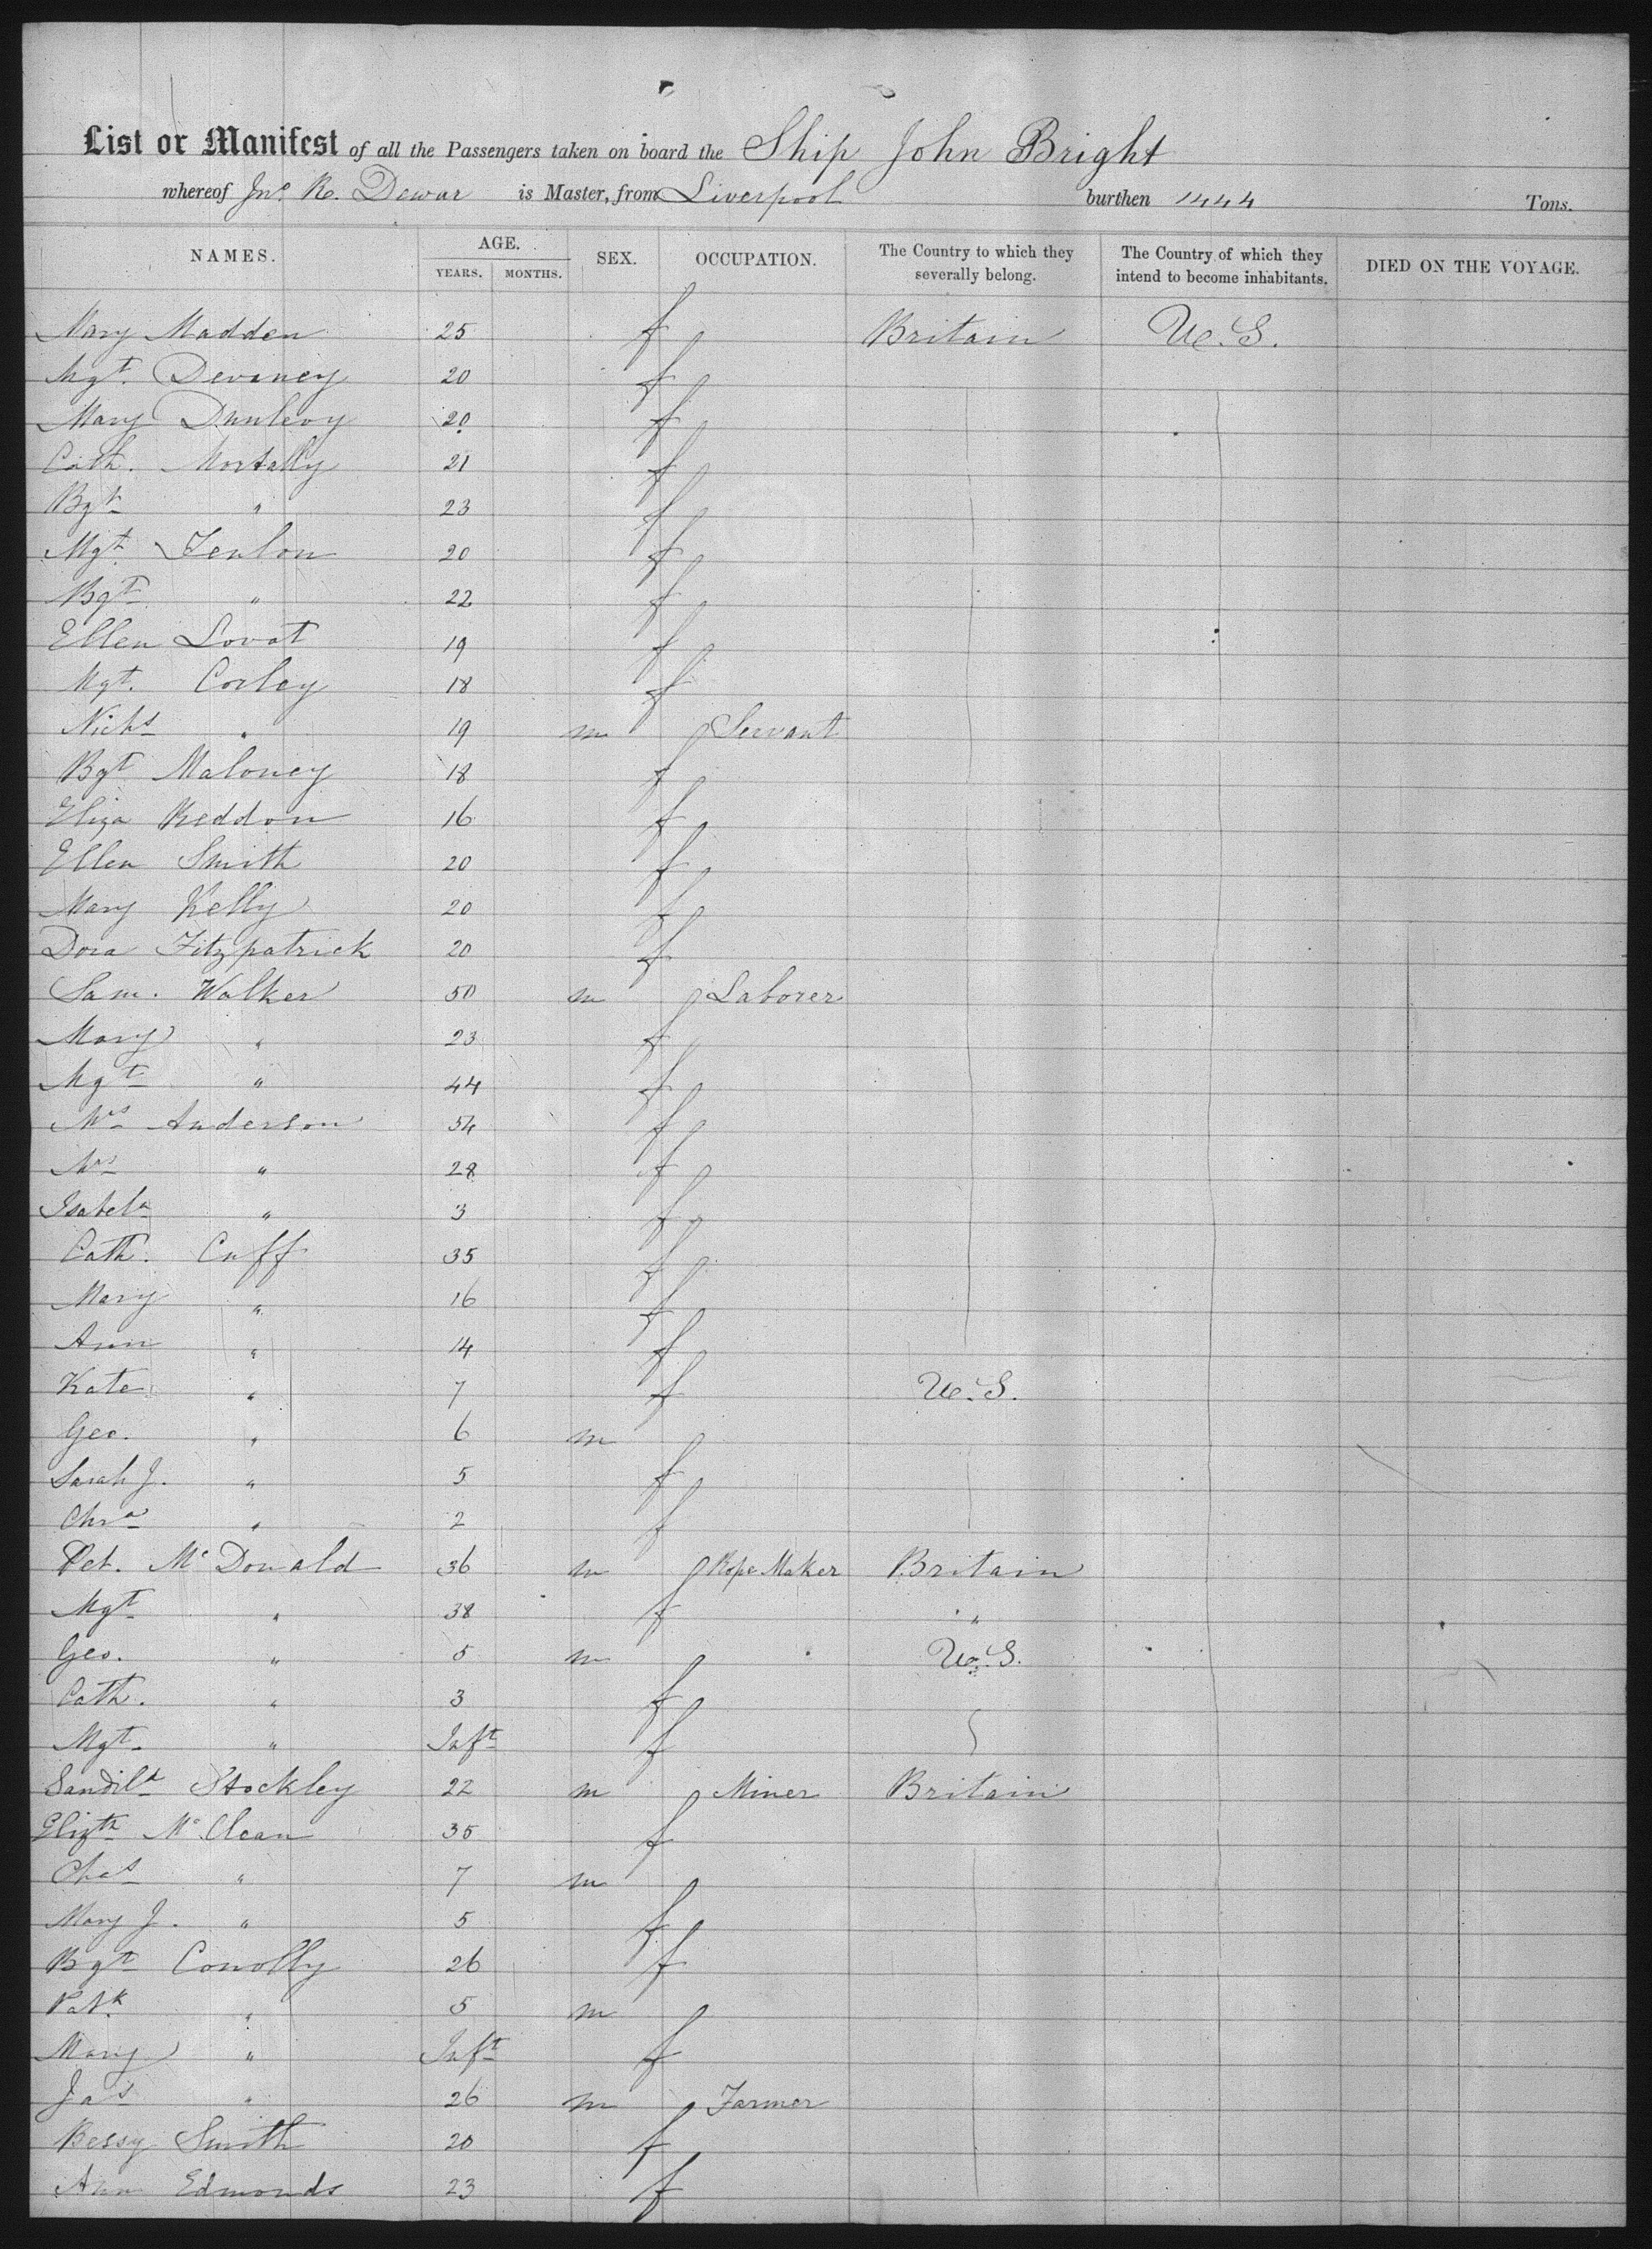 List or Manifest of all the Passengers taken on board the Ship John Bright
whereof Jno. R. Dewar is Master, from Liverpool burthen 1444 Tons.
NAMES. AGE. SEX. OCCUPATION. The Country to which they severally belong. The Country of which they intend to become inhabitants. DIED ON THE VOYAGE.
YEARS. MONTHS.
Mary Madden 25 f Britain U.S.
Mgt. Devaney 20 f
Mary Dunlevy 20 f
Cath. Mortally 21 f
Bgt " 23 f
Mgt. Fenlon 20 f
Bgt " 22 f
Ellen Lovat 19 f
Mgt. Corley 18 f
Nichs " 19 m Servant
Bgt Maloney 18 f
Eliza Reddon 16 f
Ellen Smith 20 f
Mary Kelly 20 f
Dora Fitzpatrick 20 f
Sam. Walker 50 m Laborer
Mary " 23 f
Mgt " 44 f
Mrs Anderson 54 f
Mrs " 28 f
Isabela " 3 f
Cath. Cuff 35 f
Mary " 16 f
Ann " 14 f
Kate " 7 f U.S.
Geo. " 6 m
Sarah J. " 5 f
Chra " 2 f
Pet. McDonald 36 m Rope Maker Britain
Mgt " 38 f "
Geo. " 5 m U.S.
Cath. " 3 f
Mgt. " Inft f
Stockley 22 m Miner Britain
Elizth McClean 35 f
Chas " 7 m
Mary J. " 5 f
Bgt Conolly 26 f
Patk " 5 m
Mary " Inft f
Jas " 26 m Farmer
Bessy Smith 20 f
Ann Edmonds 23 f